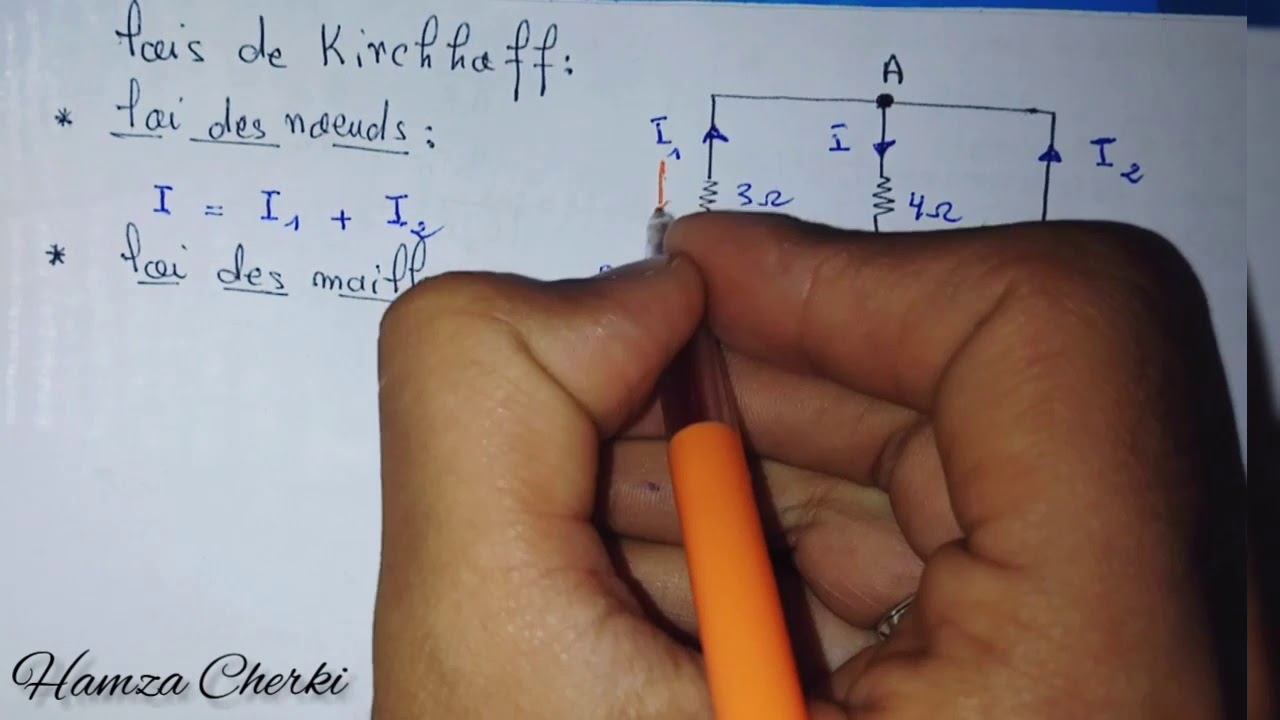 Lois de Kirchhoff:
* Loi des nœuds:
I = I₁ + I₂
* Loi des maill
A
I₁
I
I₂
3Ω
4Ω
Hamza Cherki